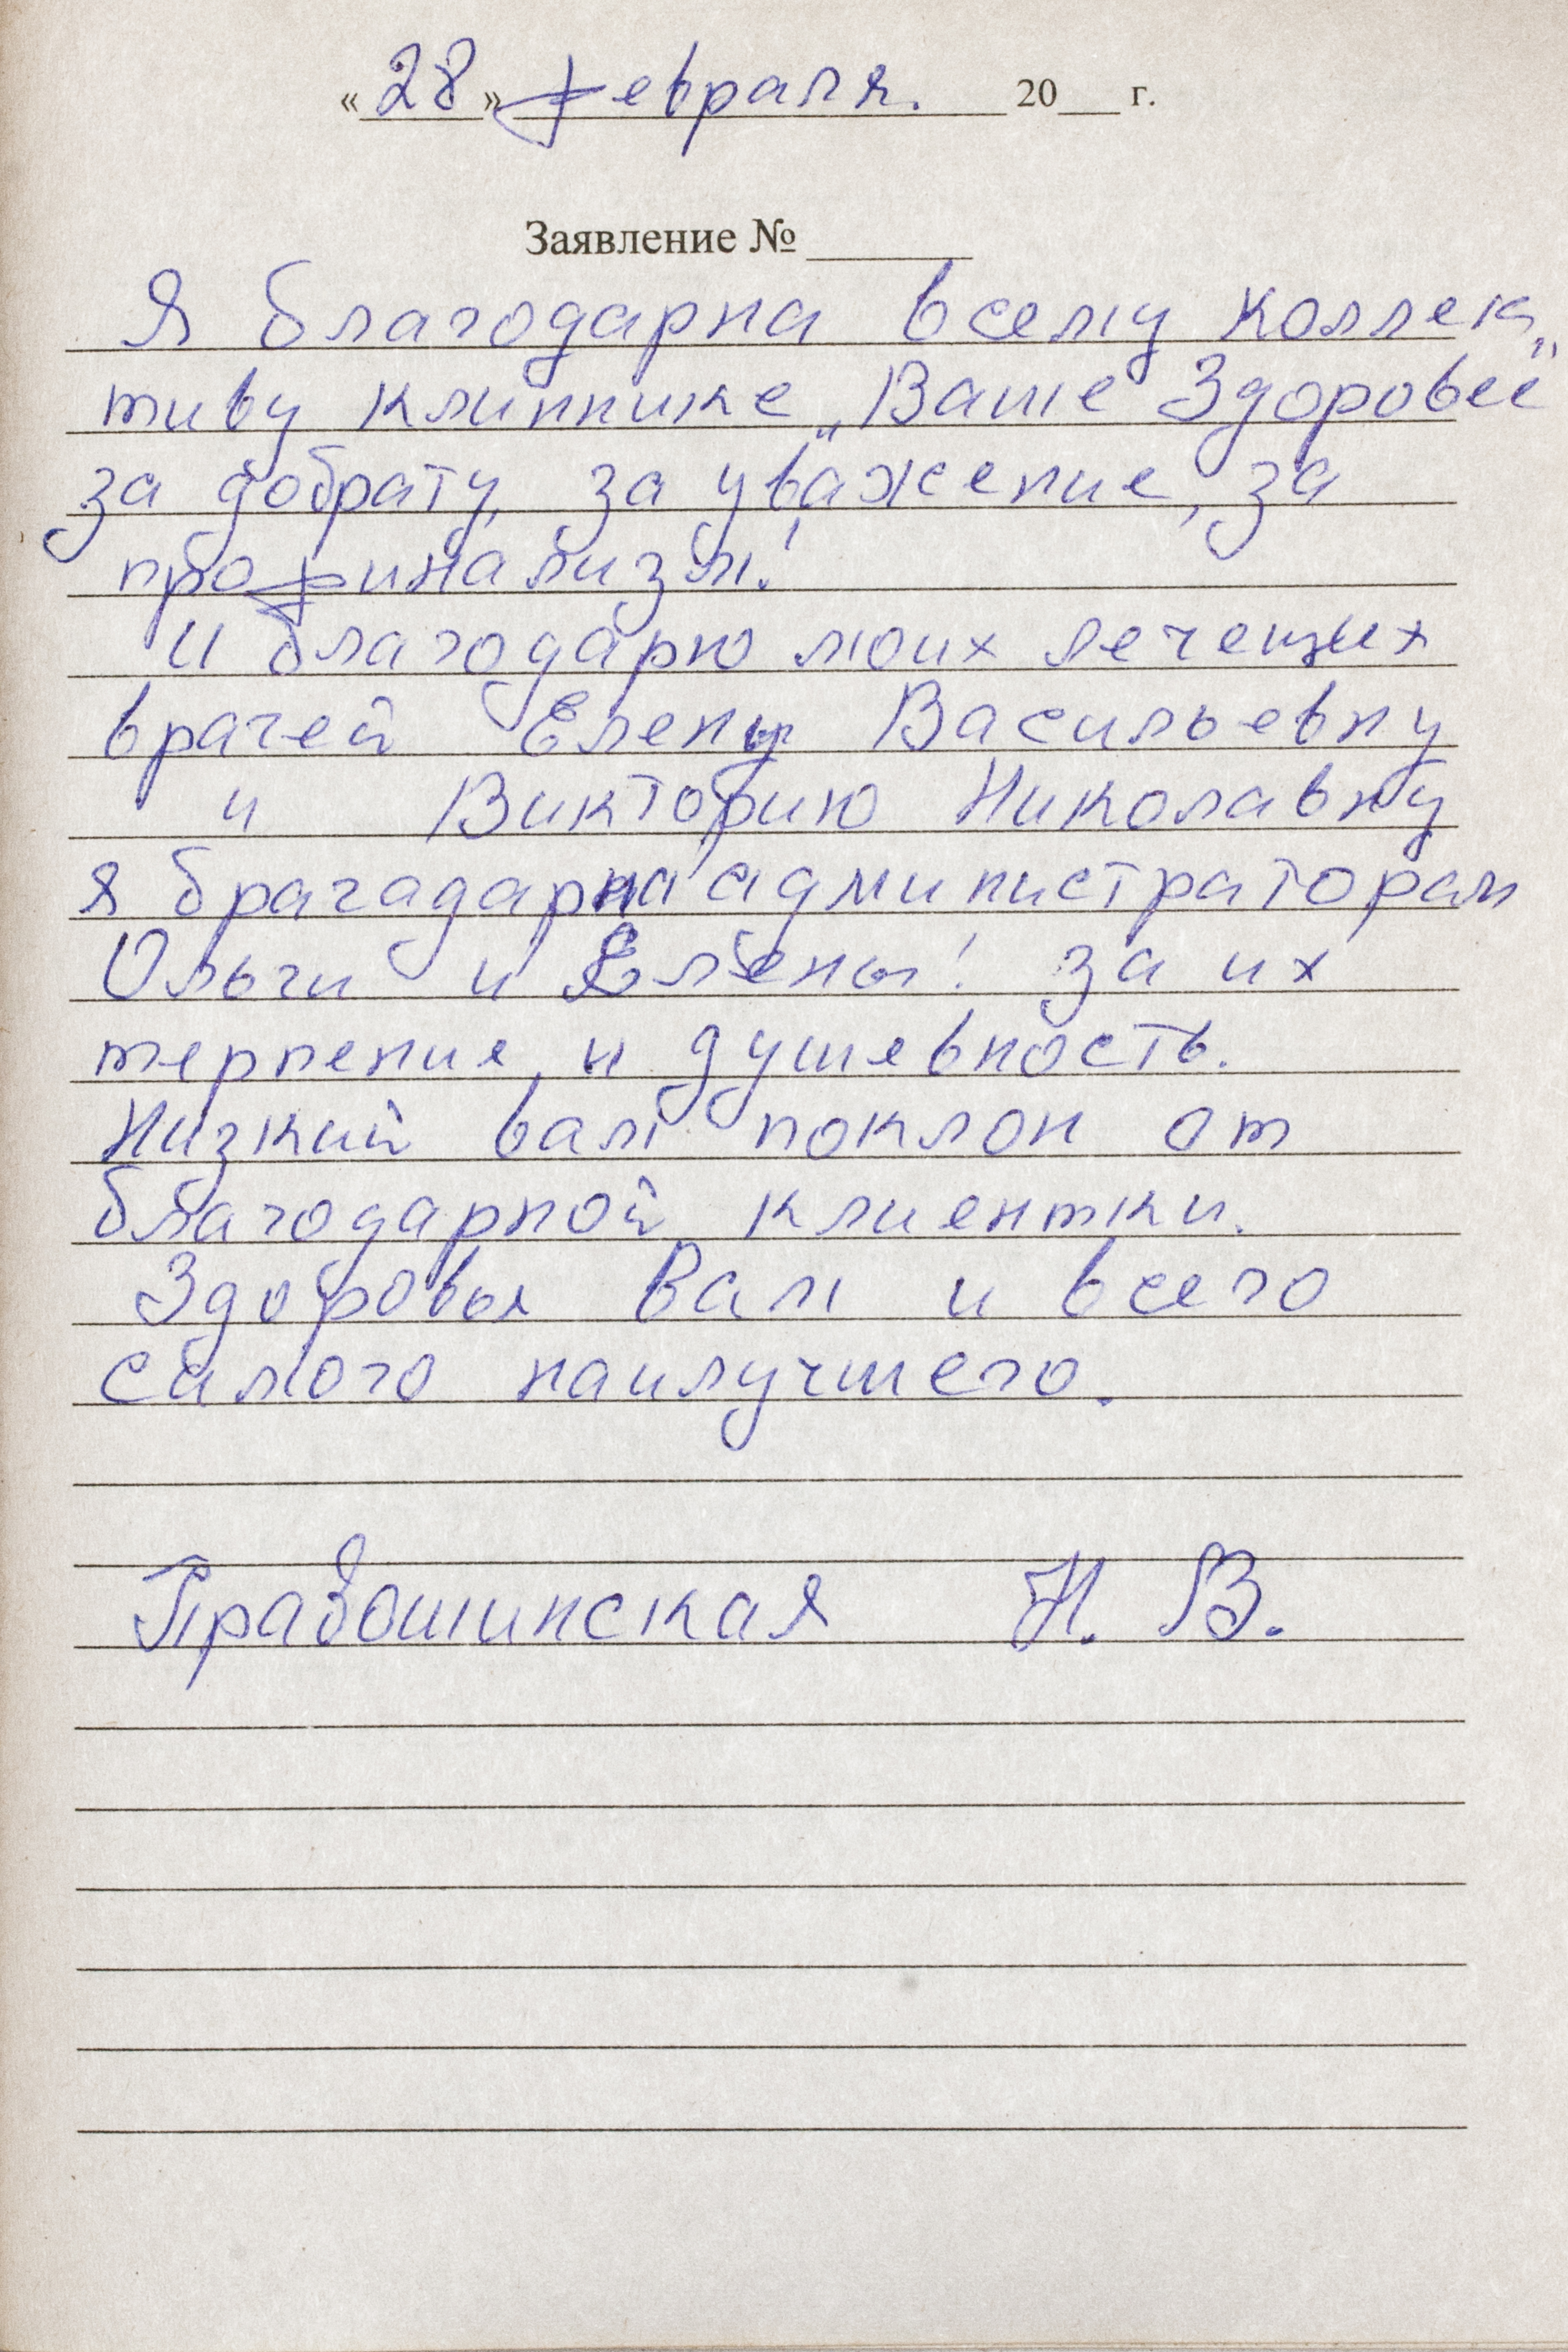 «28» февраля. 20___ г.
Заявление № ______
Я благодарна всему коллек
тиву клиннике „Ваше Здоровье"
за добрату, за уважение, за
профинализм!
И благодарю моих лечещих
врачей Елену Васильевну
и Викторию Николавну
я брагадарна администраторам
Ольги и Елены! за их
терпение, и душевность.
Низкий вам поклон от
благодарной клиентки.
Здоровья Вам и всего
самого наилучшего.
Правошинская Н. В.